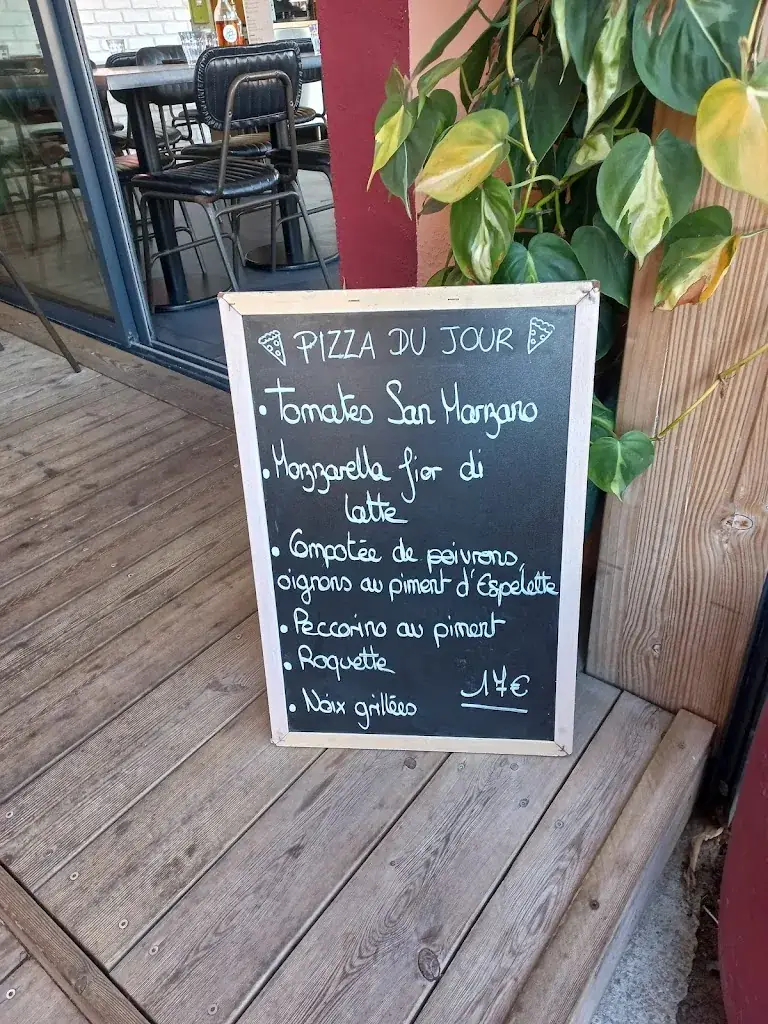 PIZZA DU JOUR
• Tomates San Marzano
• Mozzarella fior di
latte
• Compotée de poivrons,
oignons au piment d'Espelette
• Peccorino au piment
• Roquette
• Noix grillées
17€